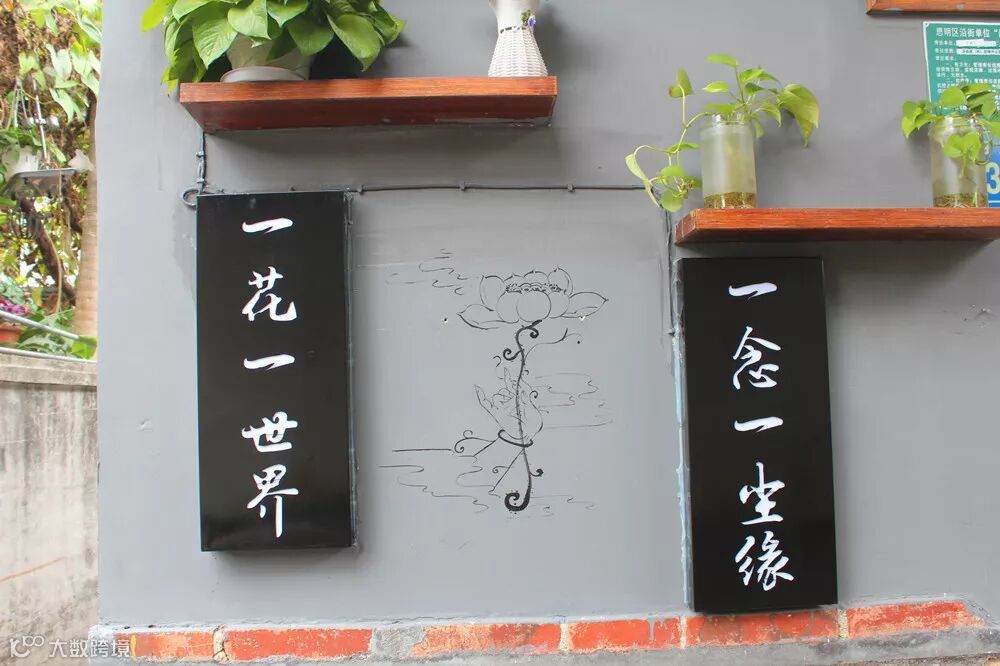 一花一世界
一念一尘缘
思明区沿街单位“
3
大数跨境